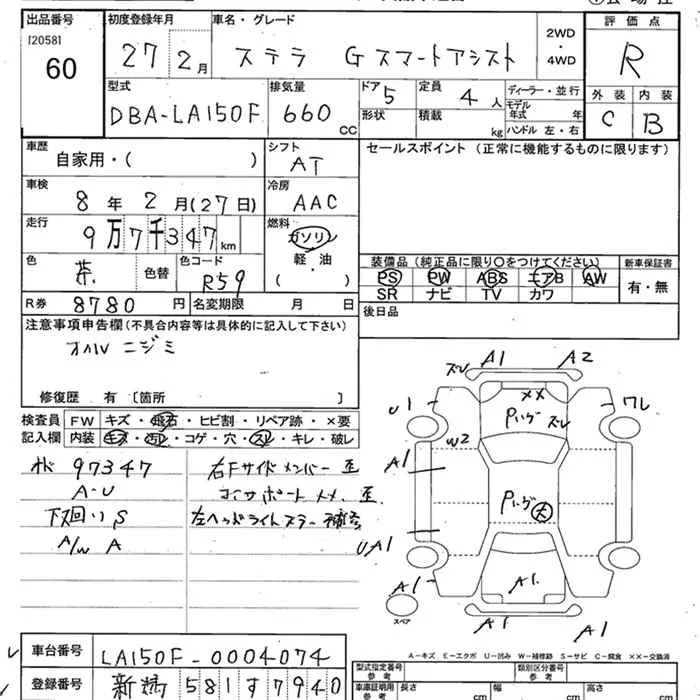 出品番号
[2058]
60
初度登録年月
27 2月
車名・グレード
ステラ Gスマートアシスト
2WD
・
4WD
評価点
R
型式
DBA-LA150F
排気量
660 CC
ドア
5
形状
定員
4 人
積載
kg
ディーラー・並行
モデル年式 年
ハンドル 左・右
外装
C
内装
B
車歴
自家用・( )
シフト
AT
セールスポイント (正常に機能するものに限ります)
車検
8 年 2 月(27日)
冷房
AAC
走行
9万7千347km
燃料
ガソリン
軽・油
( )
色
茶
色替
色コード
R59
装備品(純正品に限り○をつけてください)
PS PW ABS エアB AW
SR ナビ TV カワ
新車保証書
有・無
R券 8780 円
名変期限 月 日
後日品
注意事項申告欄(不具合内容等は具体的に記入して下さい)
オイルニジミ
修復歴 有 〔箇所 〕
検査員記入欄
FW キズ・飛石・ヒビ割・リペア跡・×要
内装 キズ・汚レ・コゲ・穴・スレ・キレ・破レ
97347
A-U
下廻り S
A/W A
右Fサイドメンバー 歪
コアサポートメメ、歪
左ヘッドライトステー補修
ズレ A1 A2
U1 XX ワレ
Pいげ ズレ
W2
A1
Pいげ 大
UA1
A1 A1.
スペア
A1 A1
A-キズ E-エクボ U-凹み W-補修跡 S-サビ C-腐食 ××-交換済
車台番号 LA150F-0004074
登録番号 新潟 581 す 7940
型式指定番号
参考
類別区分番号
参考
車庫証明用
参考
長さ cm
幅 cm
高さ cm